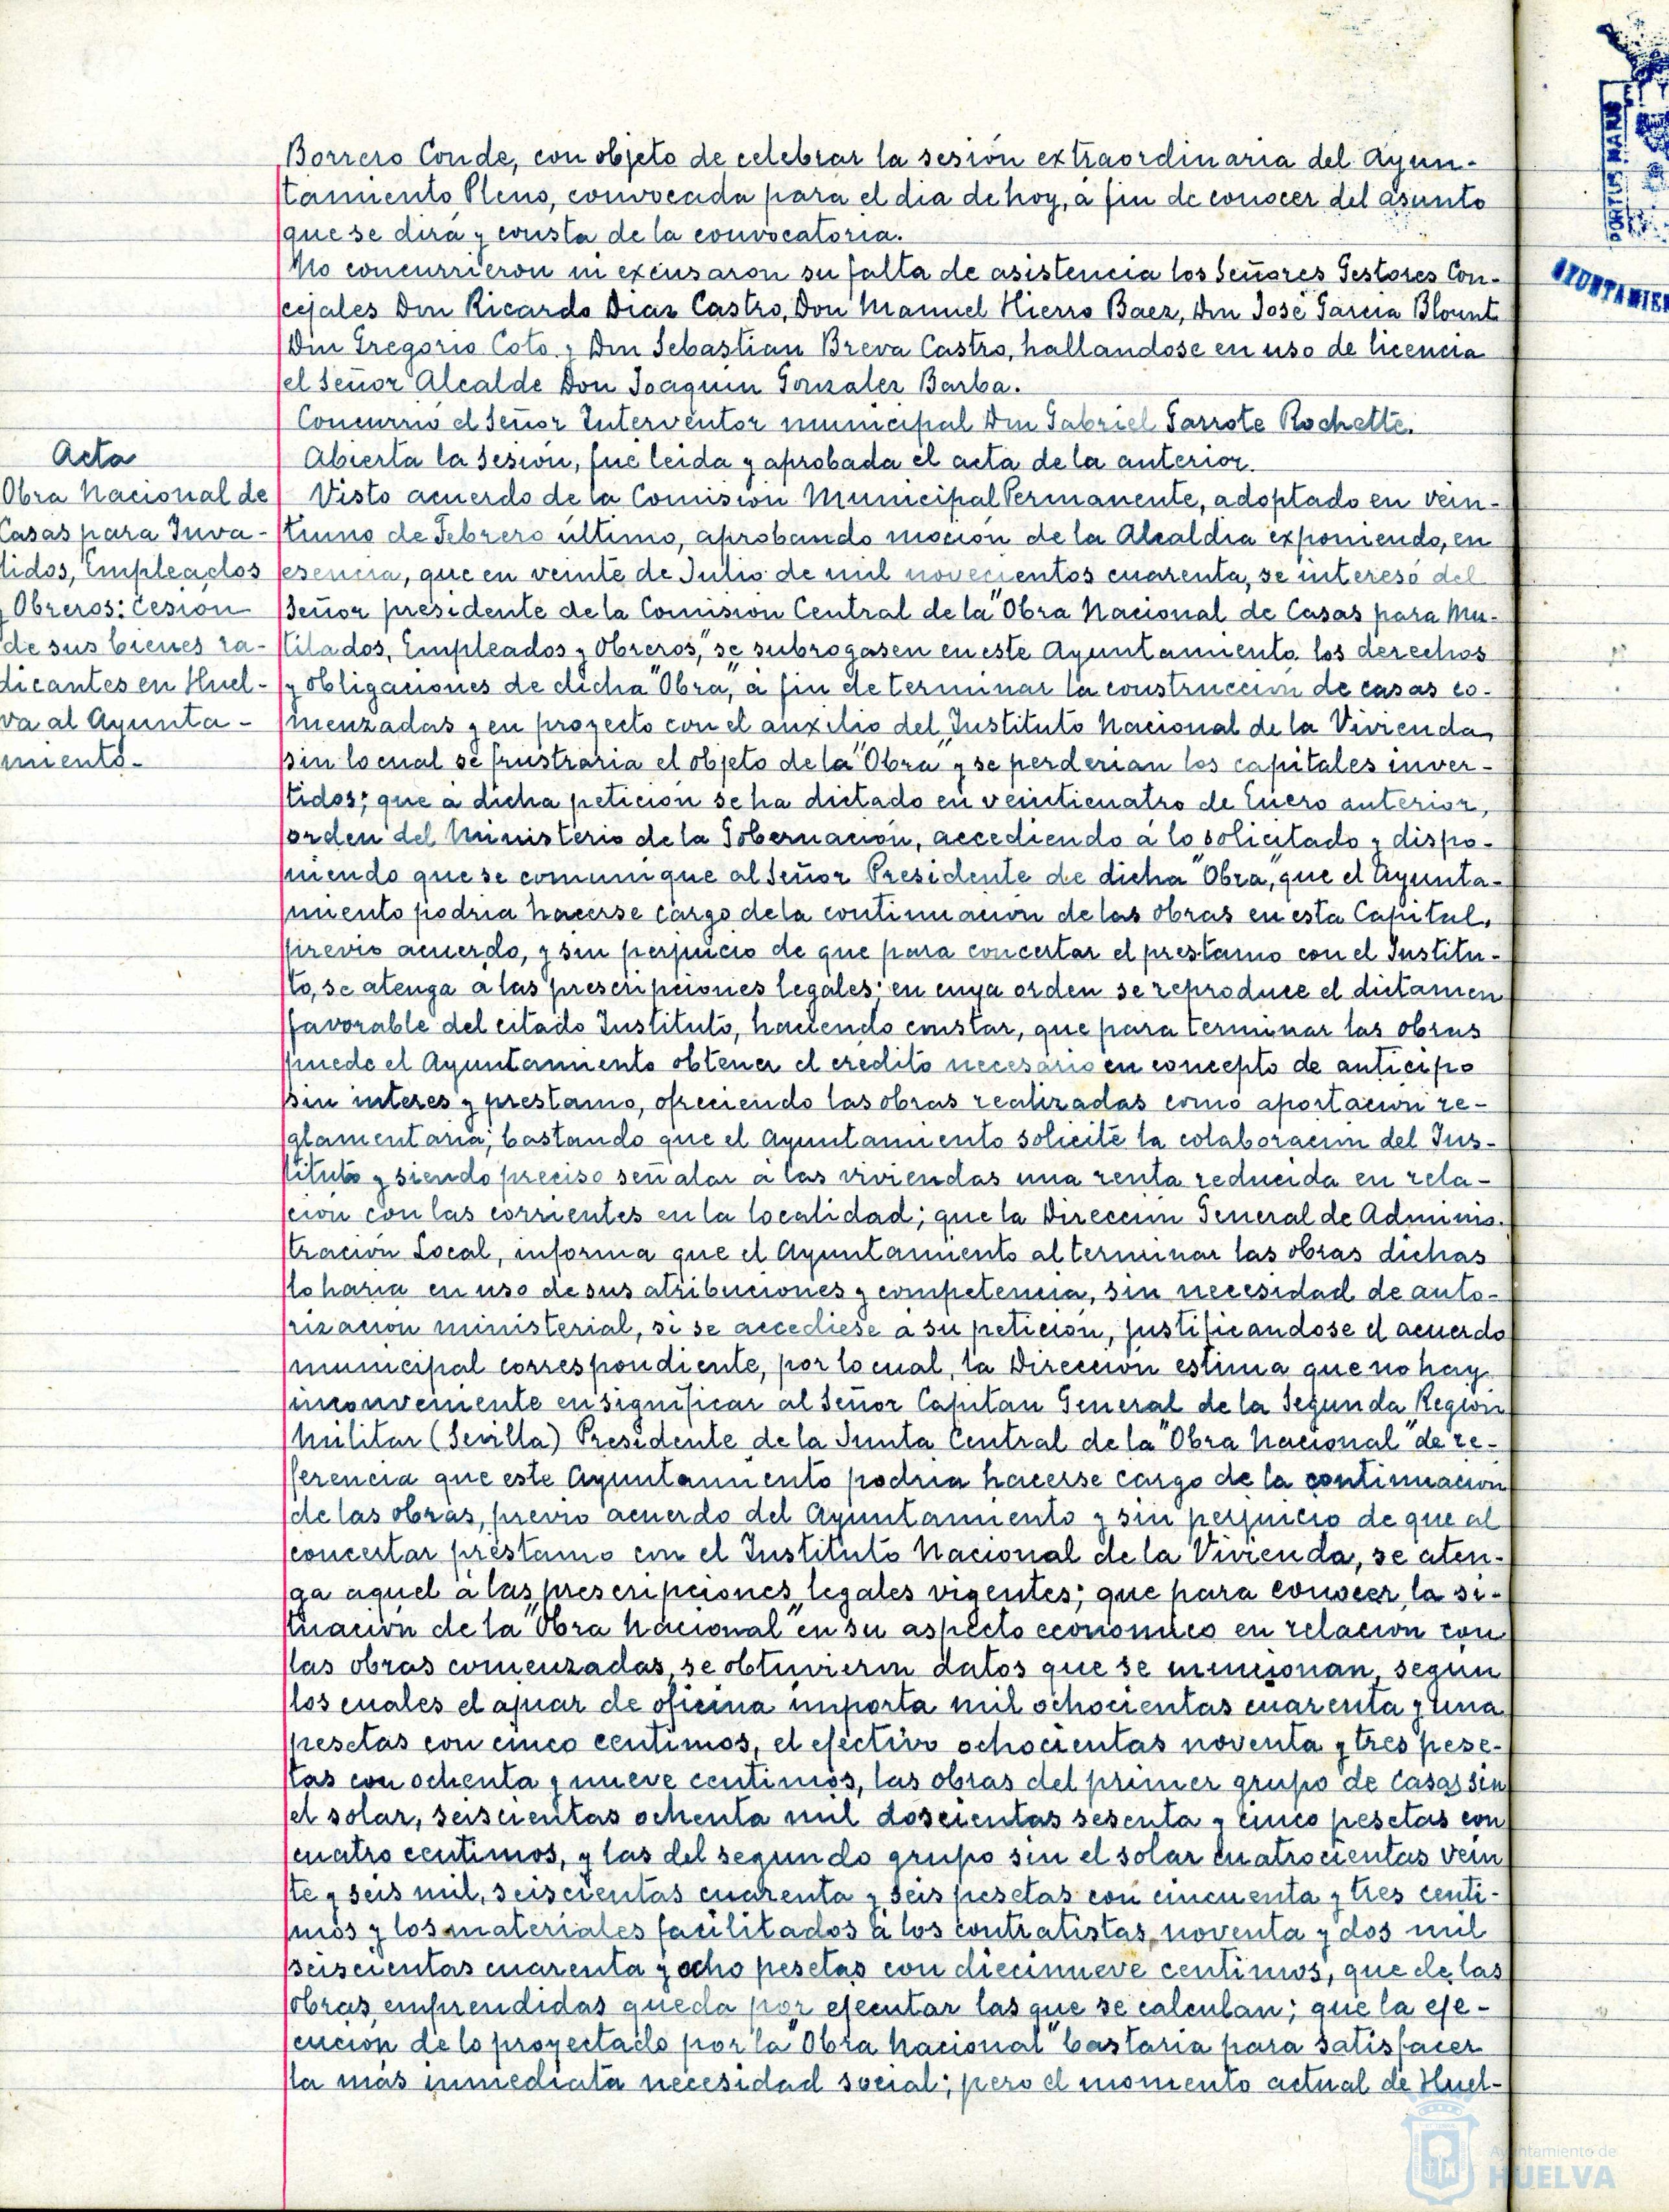 Borrero Conde, con objeto de celebrar la sesión extraordinaria del Ayun-
tamiento Pleno, convocada para el dia de hoy, á fin de conocer del asunto
que se dirá y consta de la convocatoria.
No concurrieron ni excusaron su falta de asistencia los Señores Gestores Con-
cejales Don Ricardo Diaz Castro, Don Manuel Hierro Baez, Don José Garcia Blount
Don Gregorio Coto y Don Sebastian Breva Castro, hallandose en uso de licencia
el Señor Alcalde Don Joaquin Gonzalez Barba.
Concurrió el Señor Interventor municipal Don Gabriel Garrote Rochette.
Acta
Abierta la sesión, fué leida y aprobada el acta de la anterior.
Obra Nacional de
Casas para Inva-
lidos, Empleados
y Obreros: Cesión
de sus bienes ra-
dicantes en Huel-
va al Ayunta-
miento.
Visto acuerdo de la Comision Municipal Permanente, adoptado en vein-
tiuno de Febrero último, aprobando moción de la Alcaldia exponiendo, en
esencia, que en veinte de Julio de mil novecientos cuarenta, se interesó del
Señor presidente de la Comision Central de la "Obra Nacional de Casas para Mu-
tilados, Empleados y Obreros", se subrogasen en este Ayuntamiento los derechos
y obligaciones de dicha "Obra", á fin de terminar la construccion de casas co-
menzadas y en proyecto con el auxilio del Instituto Nacional de la Vivienda,
sin lo cual se frustraria el objeto de la "Obra" y se perderian los capitales inver-
tidos; que á dicha petición se ha dictado en veinticuatro de Enero anterior,
orden del Ministerio de la Gobernación, accediendo á lo solicitado y dispo-
niendo que se comunique al Señor Presidente de dicha "Obra", que el Ayunta-
miento podria hacerse cargo de la continuación de las obras en esta Capital,
previo acuerdo, y sin perjuicio de que para concertar el prestamo con el Institu-
to, se atenga á las prescripciones legales; en cuya orden se reproduce el dictamen
favorable del citado Instituto, haciendo constar, que para terminar las obras
puede el Ayuntamiento obtener el credito necesario en concepto de anticipo
sin interes y prestamo, ofreciendo las obras realizadas como aportacion re-
glamentaria; bastando que el Ayuntamiento solicite la colaboracion del Ins-
tituto y siendo preciso señalar á las viviendas una renta reducida en rela-
ción con las corrientes en la localidad; que la Direccion General de Adminis-
tración Local, informa que el Ayuntamiento al terminar las obras dichas
lo haria en uso de sus atribuciones y competencia, sin necesidad de auto-
rizacion ministerial, si se accediese á su petición, justificandose el acuerdo
municipal correspondiente, por lo cual, la Dirección estima que no hay
inconveniente en significar al Señor Capitan General de la Segunda Región
Militar (Sevilla) Presidente de la Junta Central de la "Obra Nacional" de re-
ferencia que este Ayuntamiento podria hacerse cargo de la continuacion
de las obras, previo acuerdo del Ayuntamiento y sin perjuicio de que al
concertar préstamo con el Instituto Nacional de la Vivienda, se aten-
ga aquel á las prescripciones legales vigentes; que para conocer la si-
tuación de la "Obra Nacional" en su aspecto económico en relacion con
las obras comenzadas, se obtuvieron datos que se mencionan, según
los cuales el ajuar de oficina importa mil ochocientas cuarenta y una
pesetas con cinco centimos, el efectivo ochocientas noventa y tres pese-
tas con ochenta y nueve centimos, las obras del primer grupo de casas sin
el solar, seiscientas ochenta mil doscientas sesenta y cinco pesetas con
cuatro centimos, y las del segundo grupo sin el solar cuatrocientas vein
te y seis mil, seiscientas cuarenta y seis pesetas con cincuenta y tres centi-
mos y los materiales facilitados á los contratistas, noventa y dos mil
seiscientas cuarenta y ocho pesetas con diecinueve centimos, que de las
obras emprendidas queda por ejecutar las que se calculan; que la eje-
cución de lo proyectado por la "Obra Nacional" bastaria para satisfacer
la más inmediata necesidad social; pero el momento actual de Huel-
PORTUS MARIS
AYUNTAMIEN
Ayuntamiento de
HUELVA